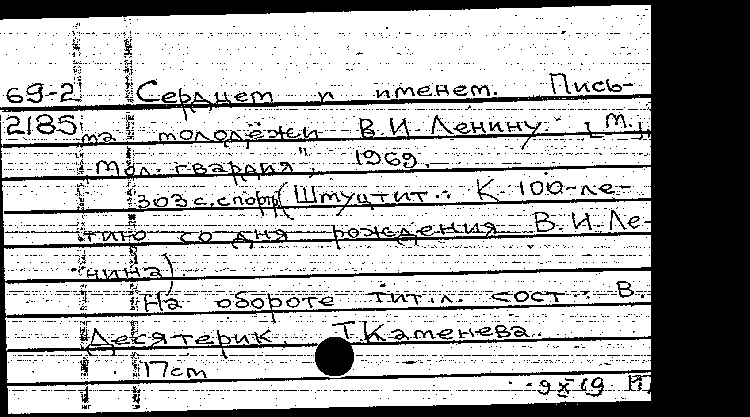 69-2 Сердцем и именем. Пись-
2185 ма молодёжи В.И. Ленину. [М.],
"Мол. гвардия", 1969.
303 с. с портр. (Шмуцтит.: К 100-ле-
тию со дня рождения В.И. Ле-
нина)
На обороте тит. л. сост.: В.
Десятерик, Т. Каменева.
17 см
9 X 69